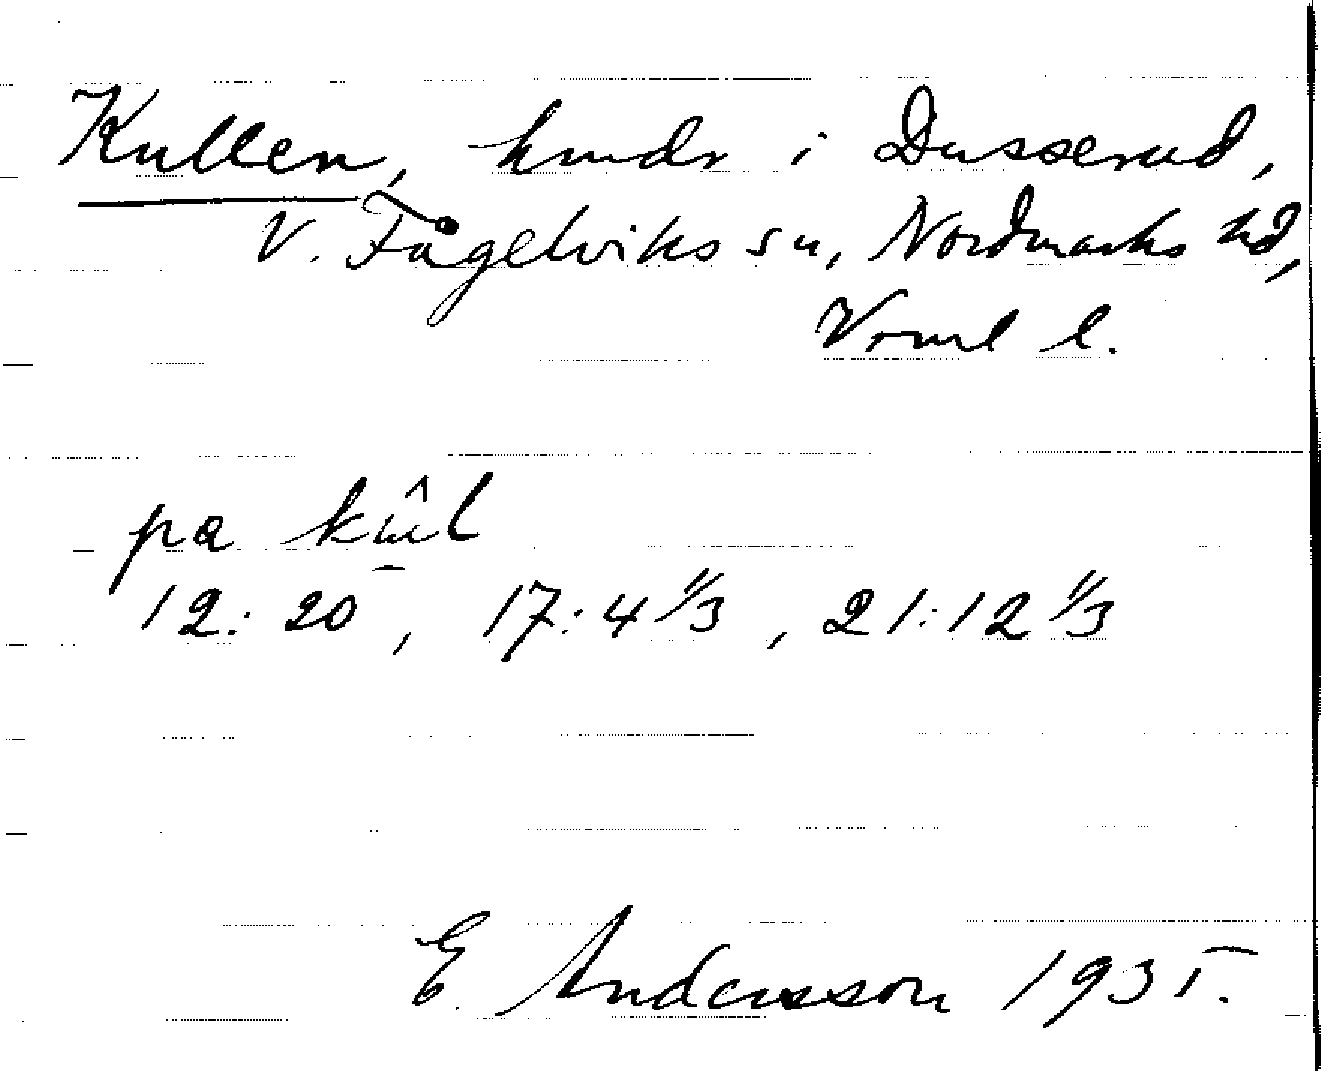 Kullen, hmdr i Dusserud,
V. Fågelviks sn, Nordmarks hd,
Vrml l.
pa kûl
12: 20, 17: 4 1/3, 21: 12 1/3
E. Andersson 1935.